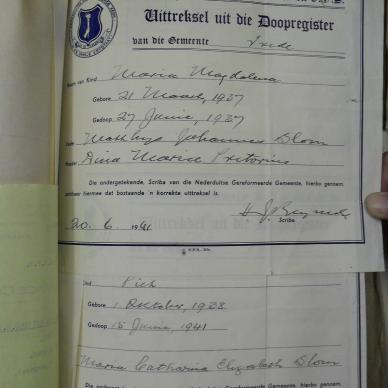 Uittreksel uit die Doopregister
van die Gemeente Vrede
Naam van Kind Maria Magdalena
Gebore 21 Maart, 1937
Gedoop 27 Junie, 1937
Vader Mathys Johannes Blom
Moeder Dina Maria Pretorius
Die ondergetekende, Scriba van die Nederduitse Gereformeerde Gemeente, hierbo genoem,
sertifiseer hiermee dat bostaande 'n korrekte uittreksel is.
20. 6. 1941
Scriba
Kind Piet
Gebore 1 Oktober, 1938
Gedoop 15 Junie, 1941
Maria Catharina Elizabeth Blom